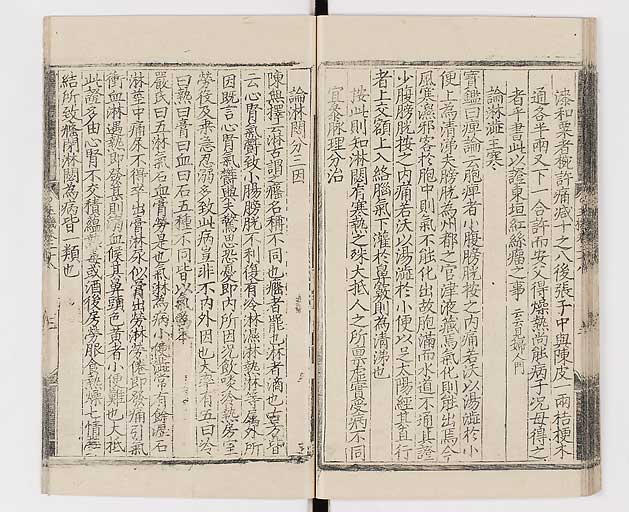 漆和粟者稅許痛減十之八後張子中與陳皮一兩桔梗木
通各半兩又下一合許而安父得燥熱尚能病子況母得之
者乎書此以證東垣紅絲瘤之事
論淋澁王寒
寶鑑曰痺論云胞痺者小腹膀胱按之内痛若沃以湯澁於小
便上爲清涕夫膀胱爲州都之官津液藏焉氣化則能出焉今
風寒濕邪客於胞中則氣不能化出故胞滿而水道不通其證
少腹膀胱按之内痛若沃以湯澁於小便以足太陽經其直行
者上交巓上入絡腦氣下灌於鼻竅則爲清涕也
按此則知淋閟有寒熱之殊大抵人之所禀虛實受病不同
宜叅脉理分治
論淋閟分三因
陳無擇云淋古謂之癃名稱不同也癃者罷也淋者滴也古方皆
云心腎氣鬱致小腸膀胱不利復有冷淋濕淋熱淋等屬外所
因既言心腎氣鬱與夫驚思恐憂即内所因況飲啖冷熱房室
勞役及乘急忍溺多致此病豈非不内外因也大率有五曰冷
曰熱曰膏曰血曰石五種不同皆以氣爲本
嚴氏曰五淋氣石血膏勞是也氣淋爲病小便澁常有餘瀝石
淋莖中痛尿不得卒出膏淋尿似膏出勞淋勞倦即發痛引氣
衝血淋遇熱即發甚則溺血候其鼻頭色黄者小便難也大抵
此證多由心腎不交積蘊熱毒或酒後房勞服食熱燥七情鬱
結所致癃閉淋閟爲病皆一類也